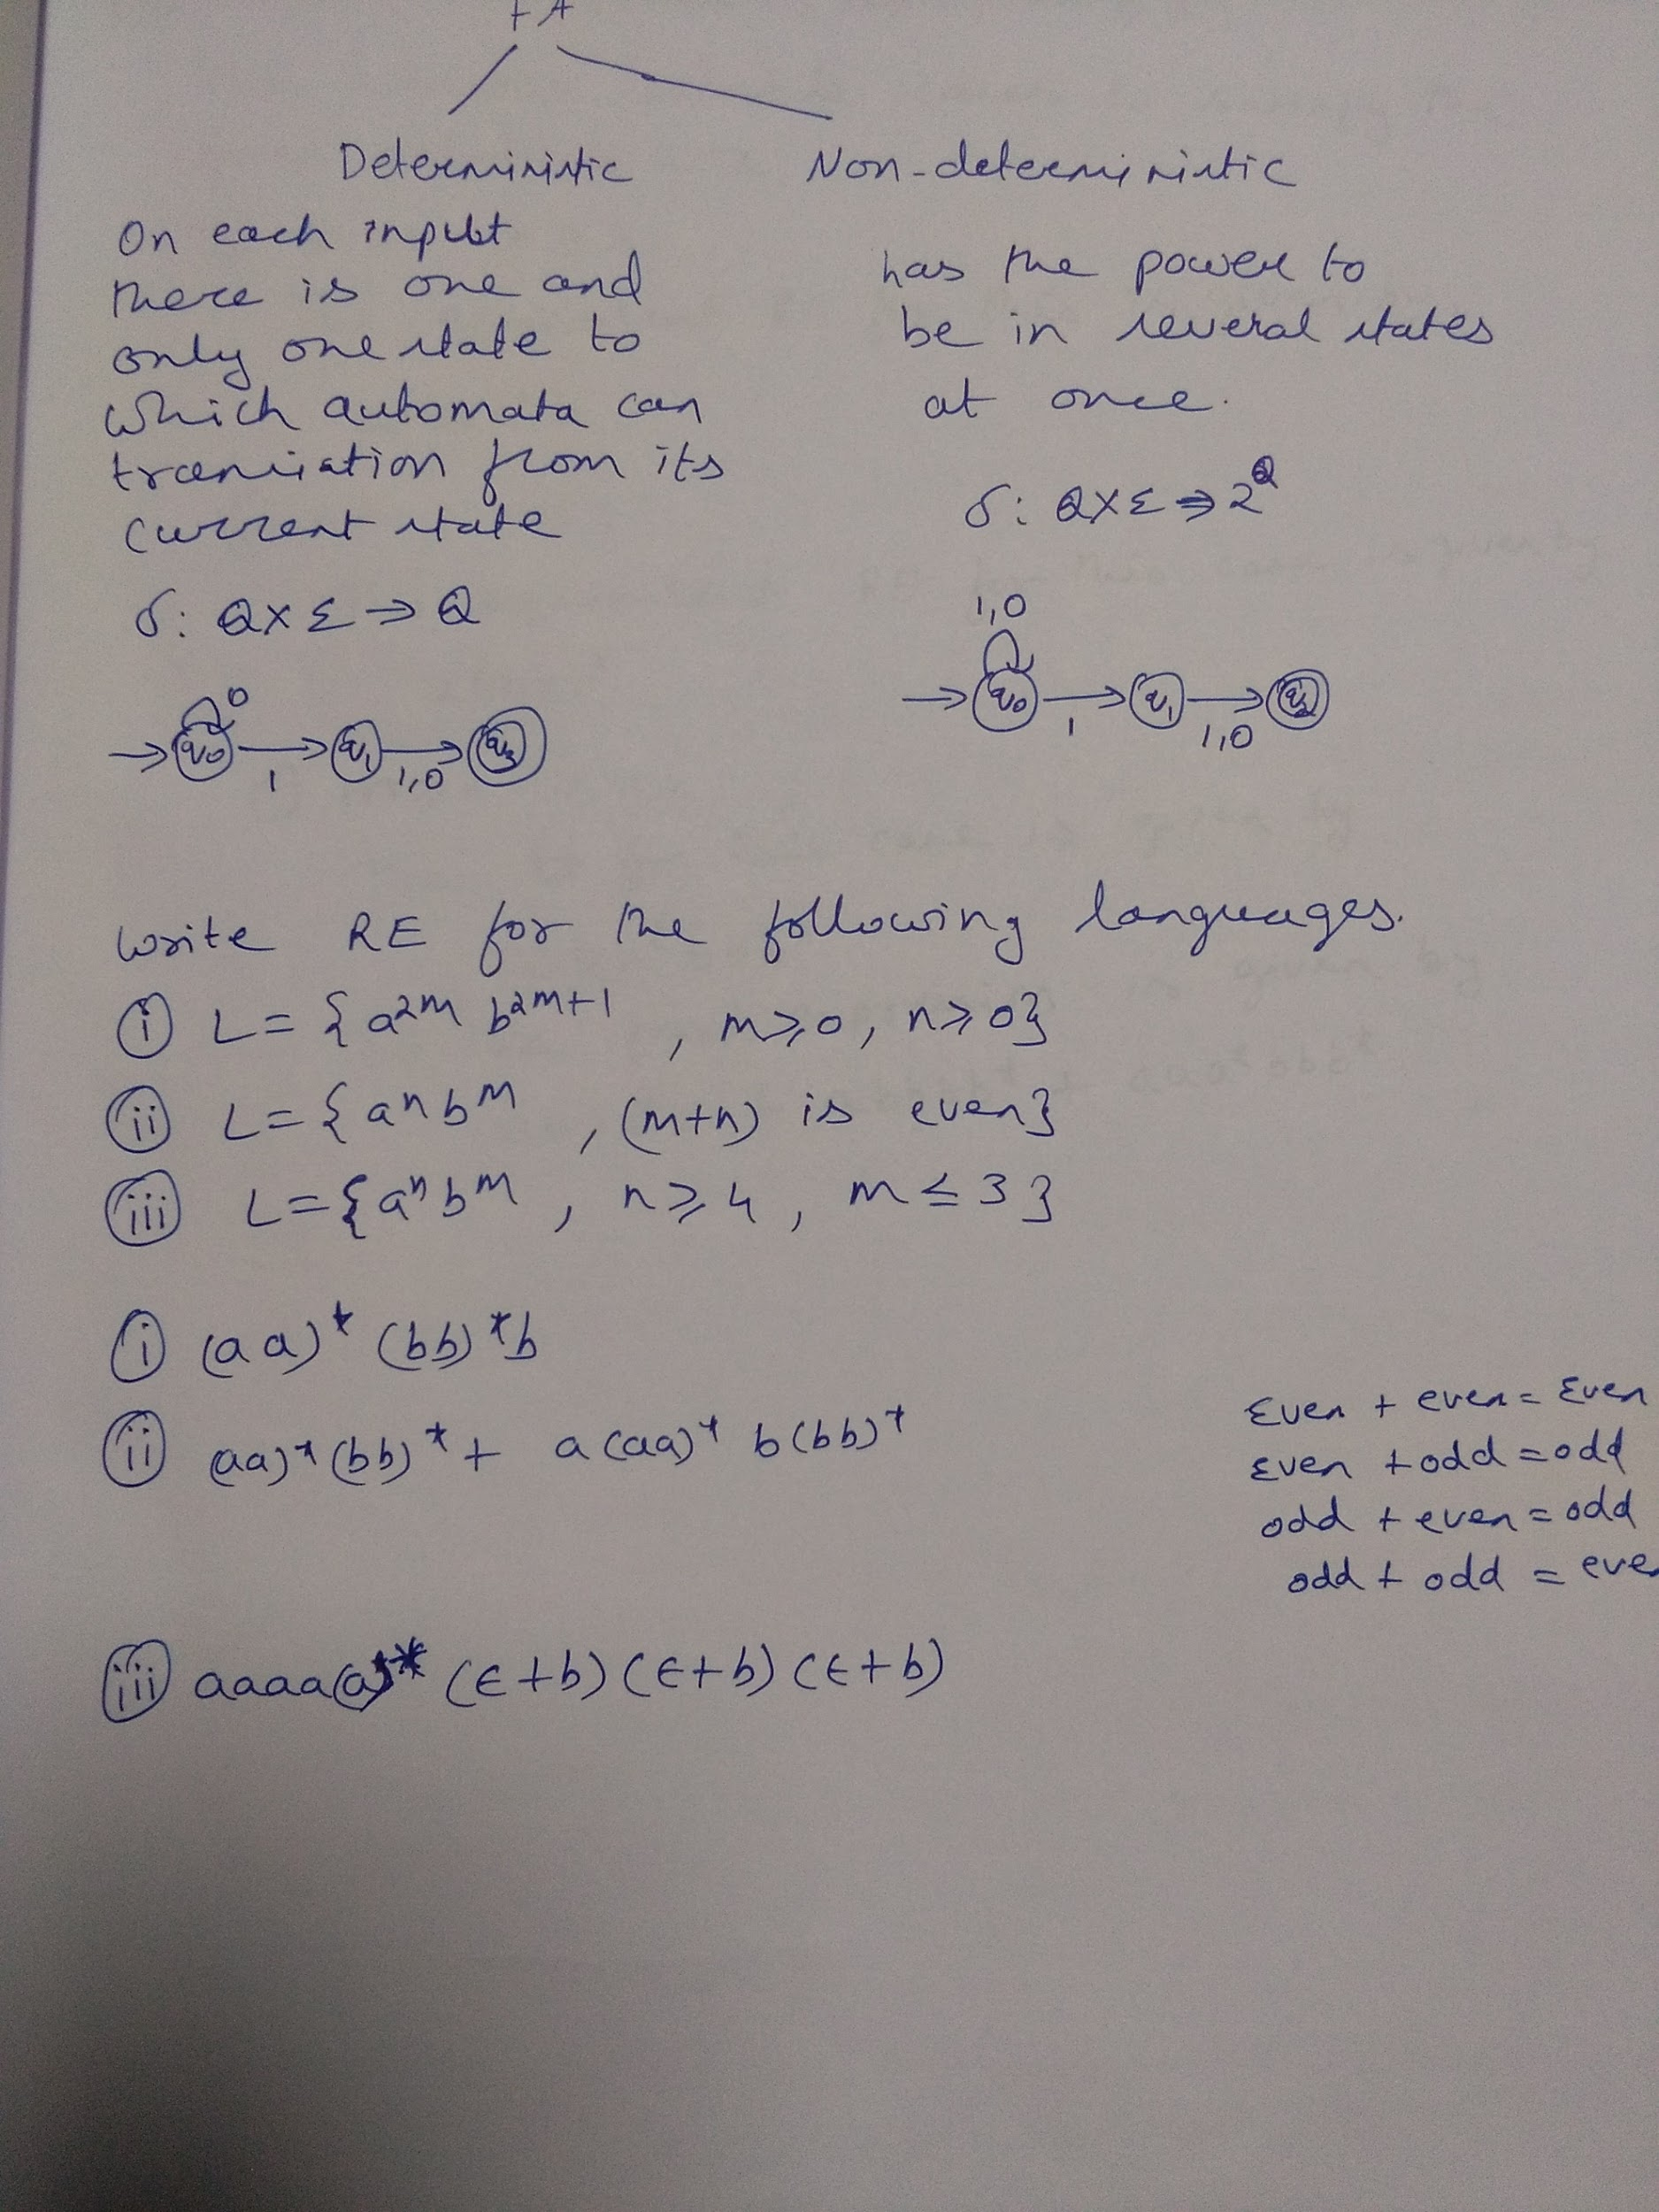 FA
Deterministic
On each input
there is one and
only one state to
which automata can
transiation from its
current state
δ: Q×Σ → Q
0
→ q0 → q1 → q3
1 1,0
Non-deterministic
has the power to
be in several states
at once.
δ: Q×Σ → 2^Q
1,0
→ q0 → q1 → q2
1 1,0
Write RE for the following languages.
(i) L = {a^2m b^2m+1 , m≥0, n≥0}
(ii) L = {a^n b^m , (m+n) is even}
(iii) L = {a^n b^m , n≥4 , m≤3}
(i) (aa)* (bb)*b
(ii) (aa)*(bb)* + a(aa)* b(bb)*
Even + even = Even
Even + odd = odd
odd + even = odd
odd + odd = eve
(iii) aaaa(a)* (ϵ+b)(ϵ+b)(ϵ+b)